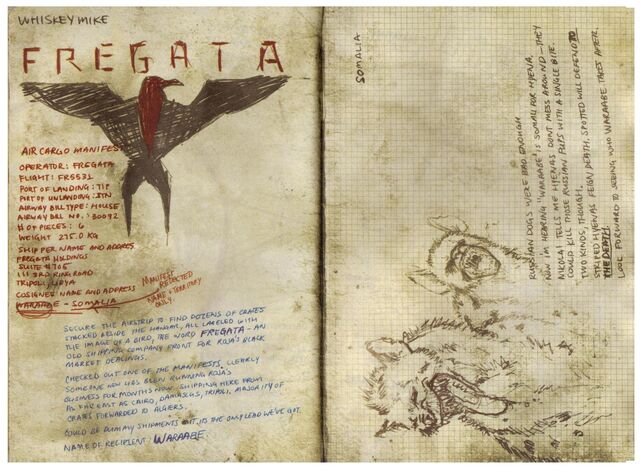 WHISKEY MIKE
FREGATA
AIR CARGO MANIFEST
OPERATOR: FREGATA
FLIGHT: FR5531
PORT OF LANDING: TIP
PORT OF UNLANDING: ITN
AIRWAY BILL TYPE: HOUSE
AIRWAY BILL NO.: 30092
# OF PIECES: 6
WEIGHT 275.0 KG
SHIPPER NAME AND ADDRESS
FREGATA HOLDINGS
SUITE #705
111 3RD RING ROAD
TRIPOLI, LIBYA
COSIGNER NAME AND ADDRESS
WARAABE - SOMALIA
MANIFEST
REDACTED
NAME + TERRITORY
ONLY.
SECURE THE AIRSTRIP TO FIND DOZENS OF CRATES
STACKED BESIDE THE HANGAR, ALL LABELED WITH
THE IMAGE OF A BIRD, THE WORD FREGATA - AN
OLD SHIPPING COMPANY FRONT FOR ROJA'S BLACK
MARKET DEALINGS.
CHECKED OUT ONE OF THE MANIFESTS. CLEARLY
SOMEONE NEW HAS BEEN RUNNING ROJA'S
BUSINESS FOR MONTHS NOW. SHIPPING HERE FROM
AS FAR EAST AS CAIRO, DAMASCUS, TRIPOLI, MAJORITY OF
CRATES FORWARDED TO ALGIERS.
COULD BE DUMMY SHIPMENTS BUT ITS THE ONLY LEAD WE'VE GOT.
NAME OF RECIPIENT: WARAABE
SOMALIA
RUSSIAN DOGS WERE BAD ENOUGH
NOW I'M HEARING "WARAABE" IS SOMALI FOR HYENA.
NICOLAI TELLS ME HYENAS DONT MESS AROUND - THEY
COULD KILL THOSE RUSSIAN PUPS WITH A SINGLE BITE.
TWO KINDS, THOUGH.
STRIPED HYENAS FEIGN DEATH, SPOTTED WILL DEFEND TO
THE DEATH.
LOOK FORWARD TO SEEING WHO WARAABE TAKES AFTER.